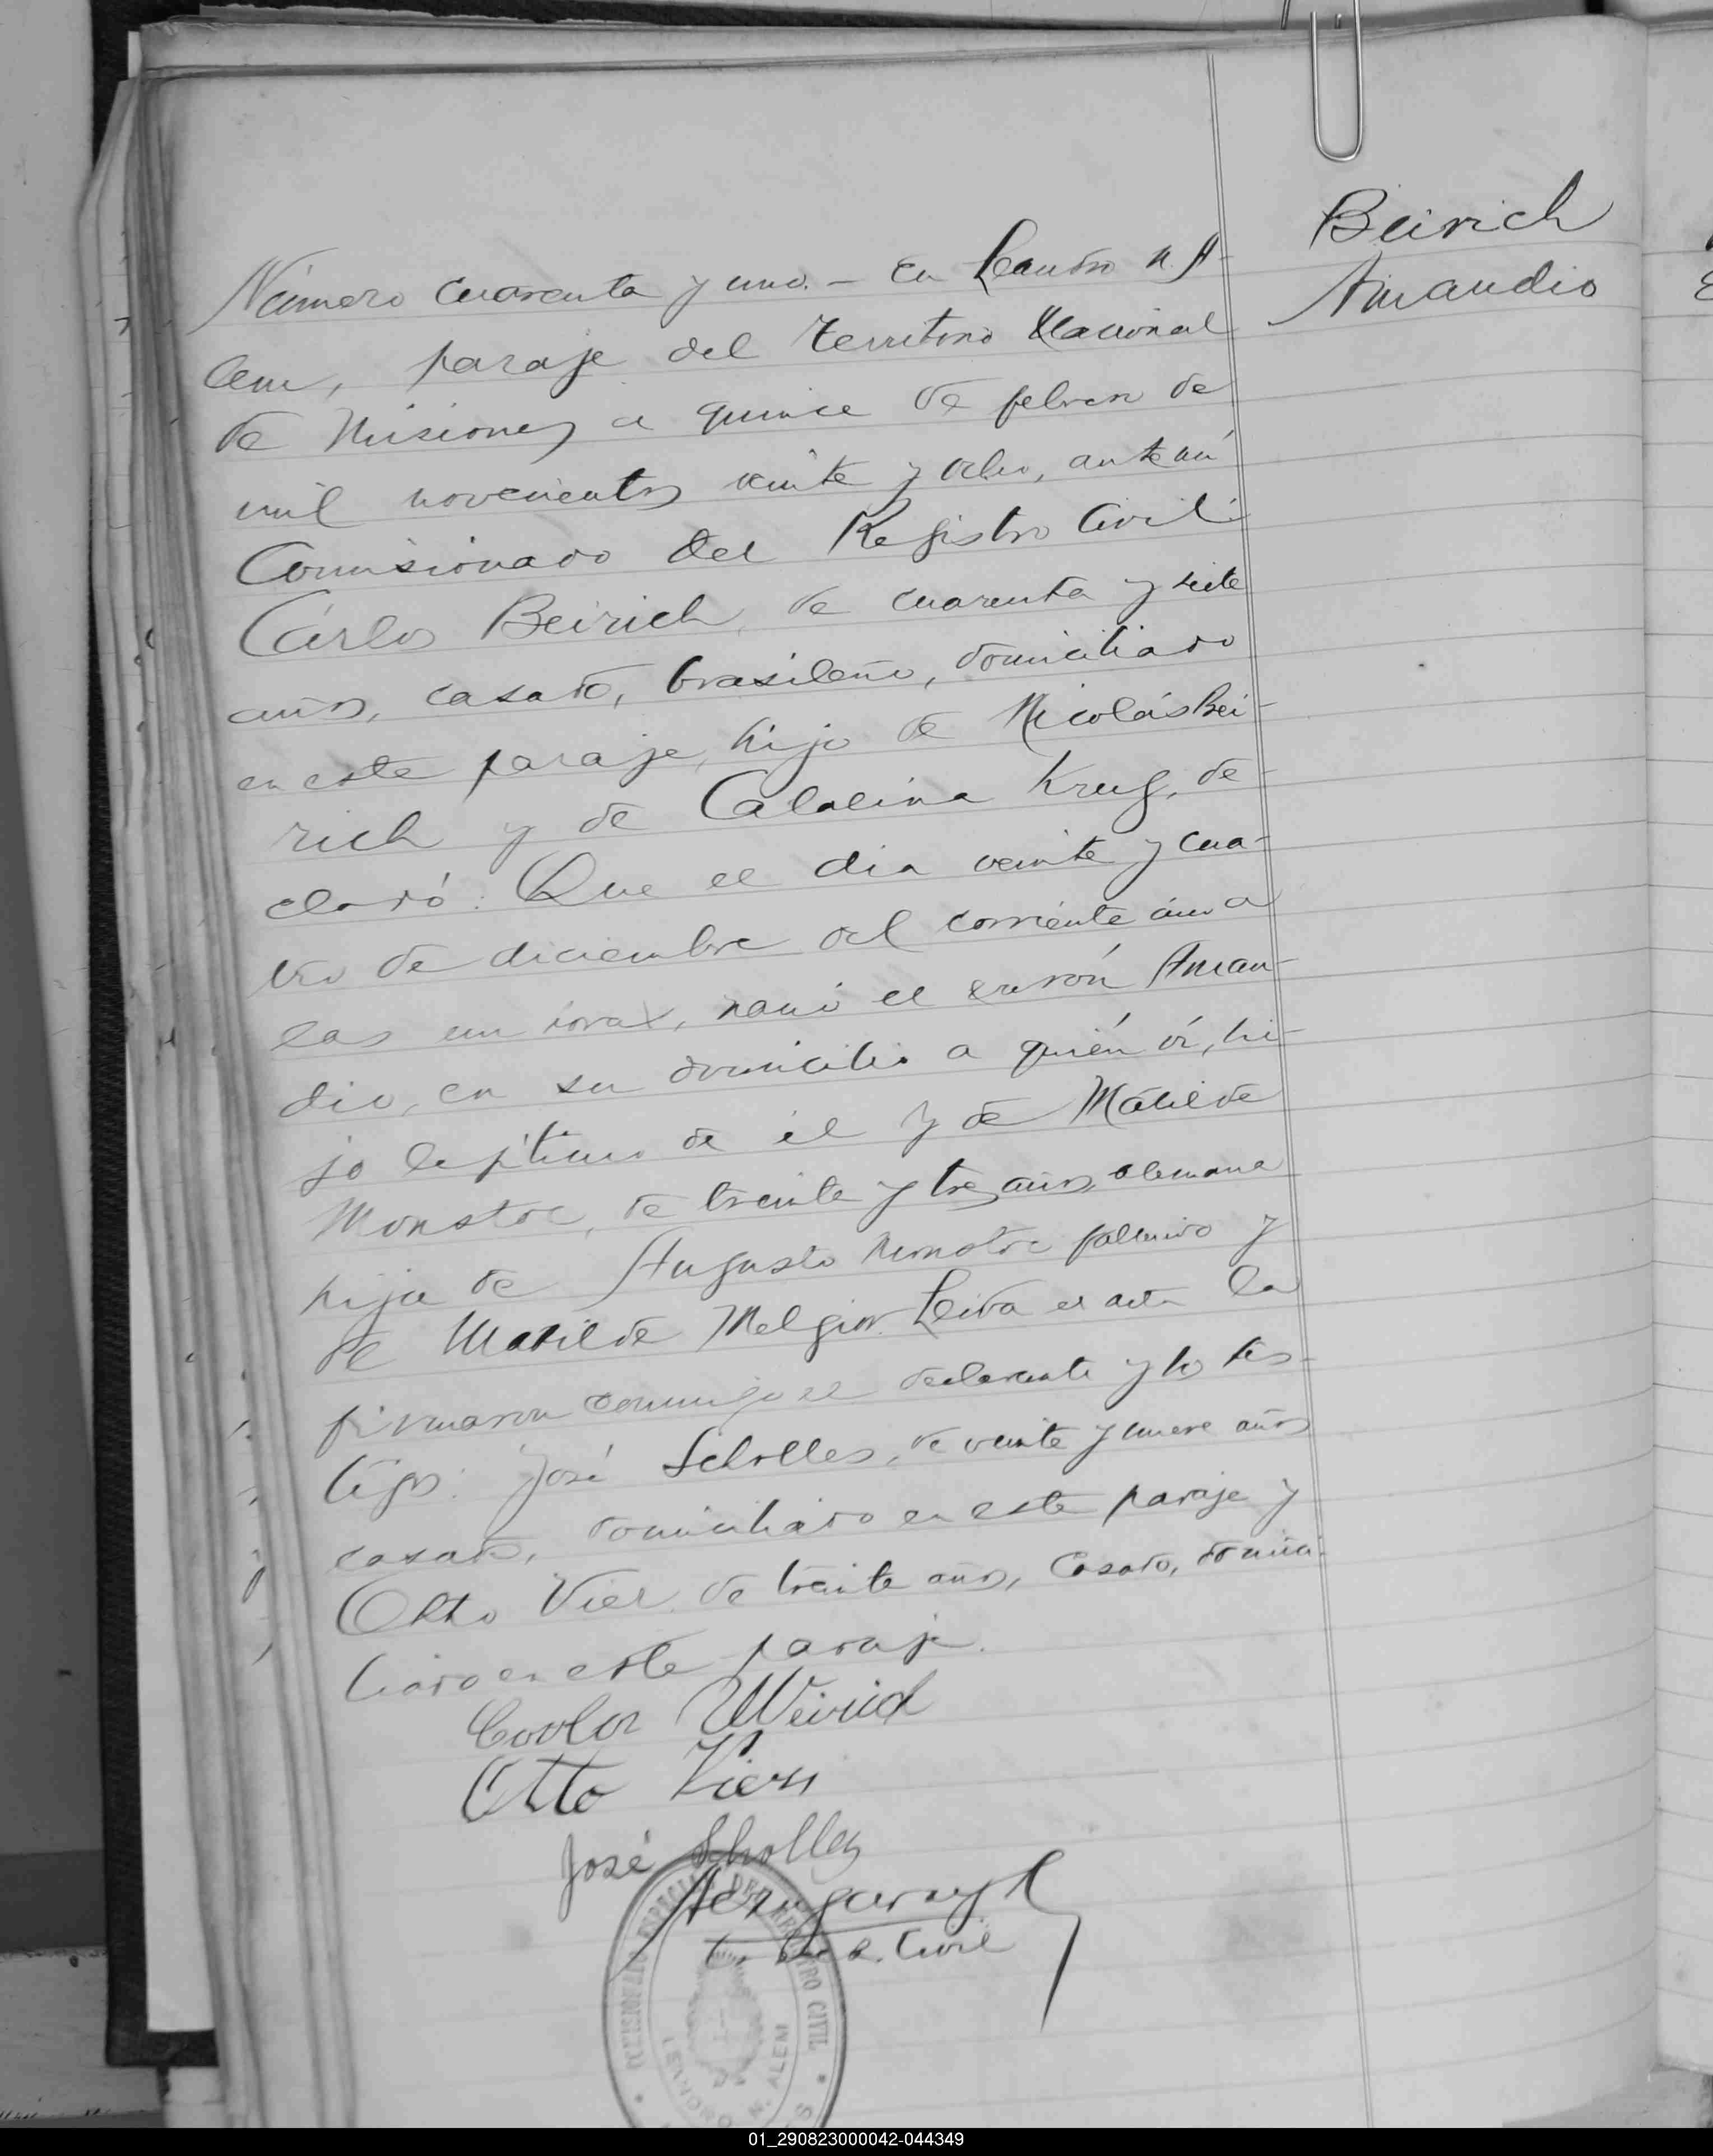 Beirich
Amandio
Número cuarenta y uno. - En Leandro N. A-
lem, paraje del Territorio Nacional
de Misiones a quince de febrero de
mil novecientos veinte y ocho, ante mí
Comisionado del Registro Civil:
Cárlos Beirich, de cuarenta y siete
años, casado, brasileño, domiciliado
en este paraje, hijo de Nicolás Bei-
rich y de Catalina Krug, de-
claró: Que el dia veinte y cua-
tro de diciembre del corriente año a
las horas, nació el varón Aman-
dio, en su domicilio a quién ví, hi-
jo legítimo de él y de Matilde
Monstoc, de treinta y tres años, alemana
hija de Augusto Monstoc fallecido y
de Matilde Melgior. Leida el acta la
firmaron conmigo el declarante y los tes-
tigos: José Scholles, de veinte y nueve años
casado, domiciliado en este paraje y
Otto Vier de treinta años, casado, domici-
liado en este paraje.
Carlos Weirich
Otto Viers
José Scholles
R. Civil
COMISIONADO ESPECIAL DEL REGISTRO CIVIL
LEANDRO N. ALEM
01_290823000042-044349